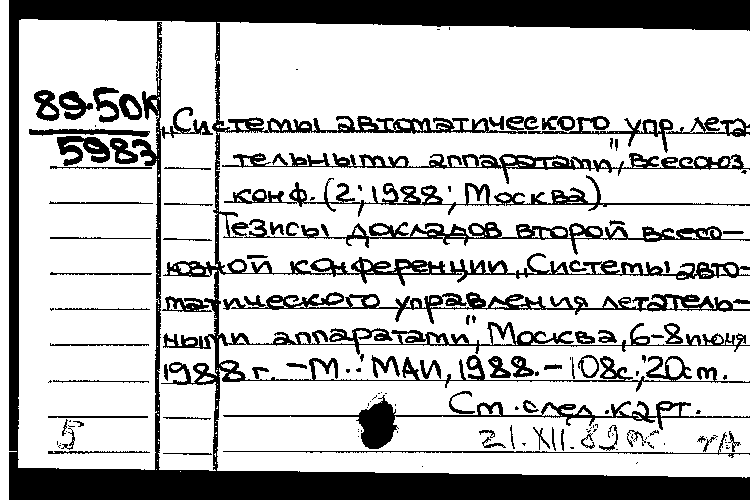 89-50К
5983
„Системы автоматического упр. лета-
тельными аппаратами", всесоюз.
конф. (2; 1988; Москва).
Тезисы докладов второй всесо-
юзной конференции „Системы авто-
матического управления летатель-
ными аппаратами", Москва, 6-8 июня
1988 г. - М.: МАИ, 1988. - 108с.; 20см.
См. след. карт.
5
21.XII.89